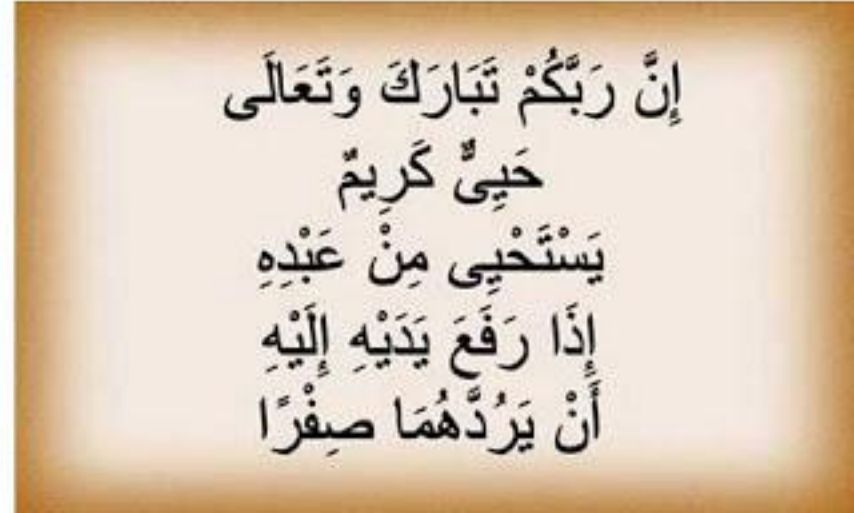 إِنَّ رَبَّكُمْ تَبَارَكَ وَتَعَالَى
حَيِىٌّ كَرِيمٌ
يَسْتَحْيِى مِنْ عَبْدِهِ
إِذَا رَفَعَ يَدَيْهِ إِلَيْهِ
أَنْ يَرُدَّهُمَا صِفْرًا